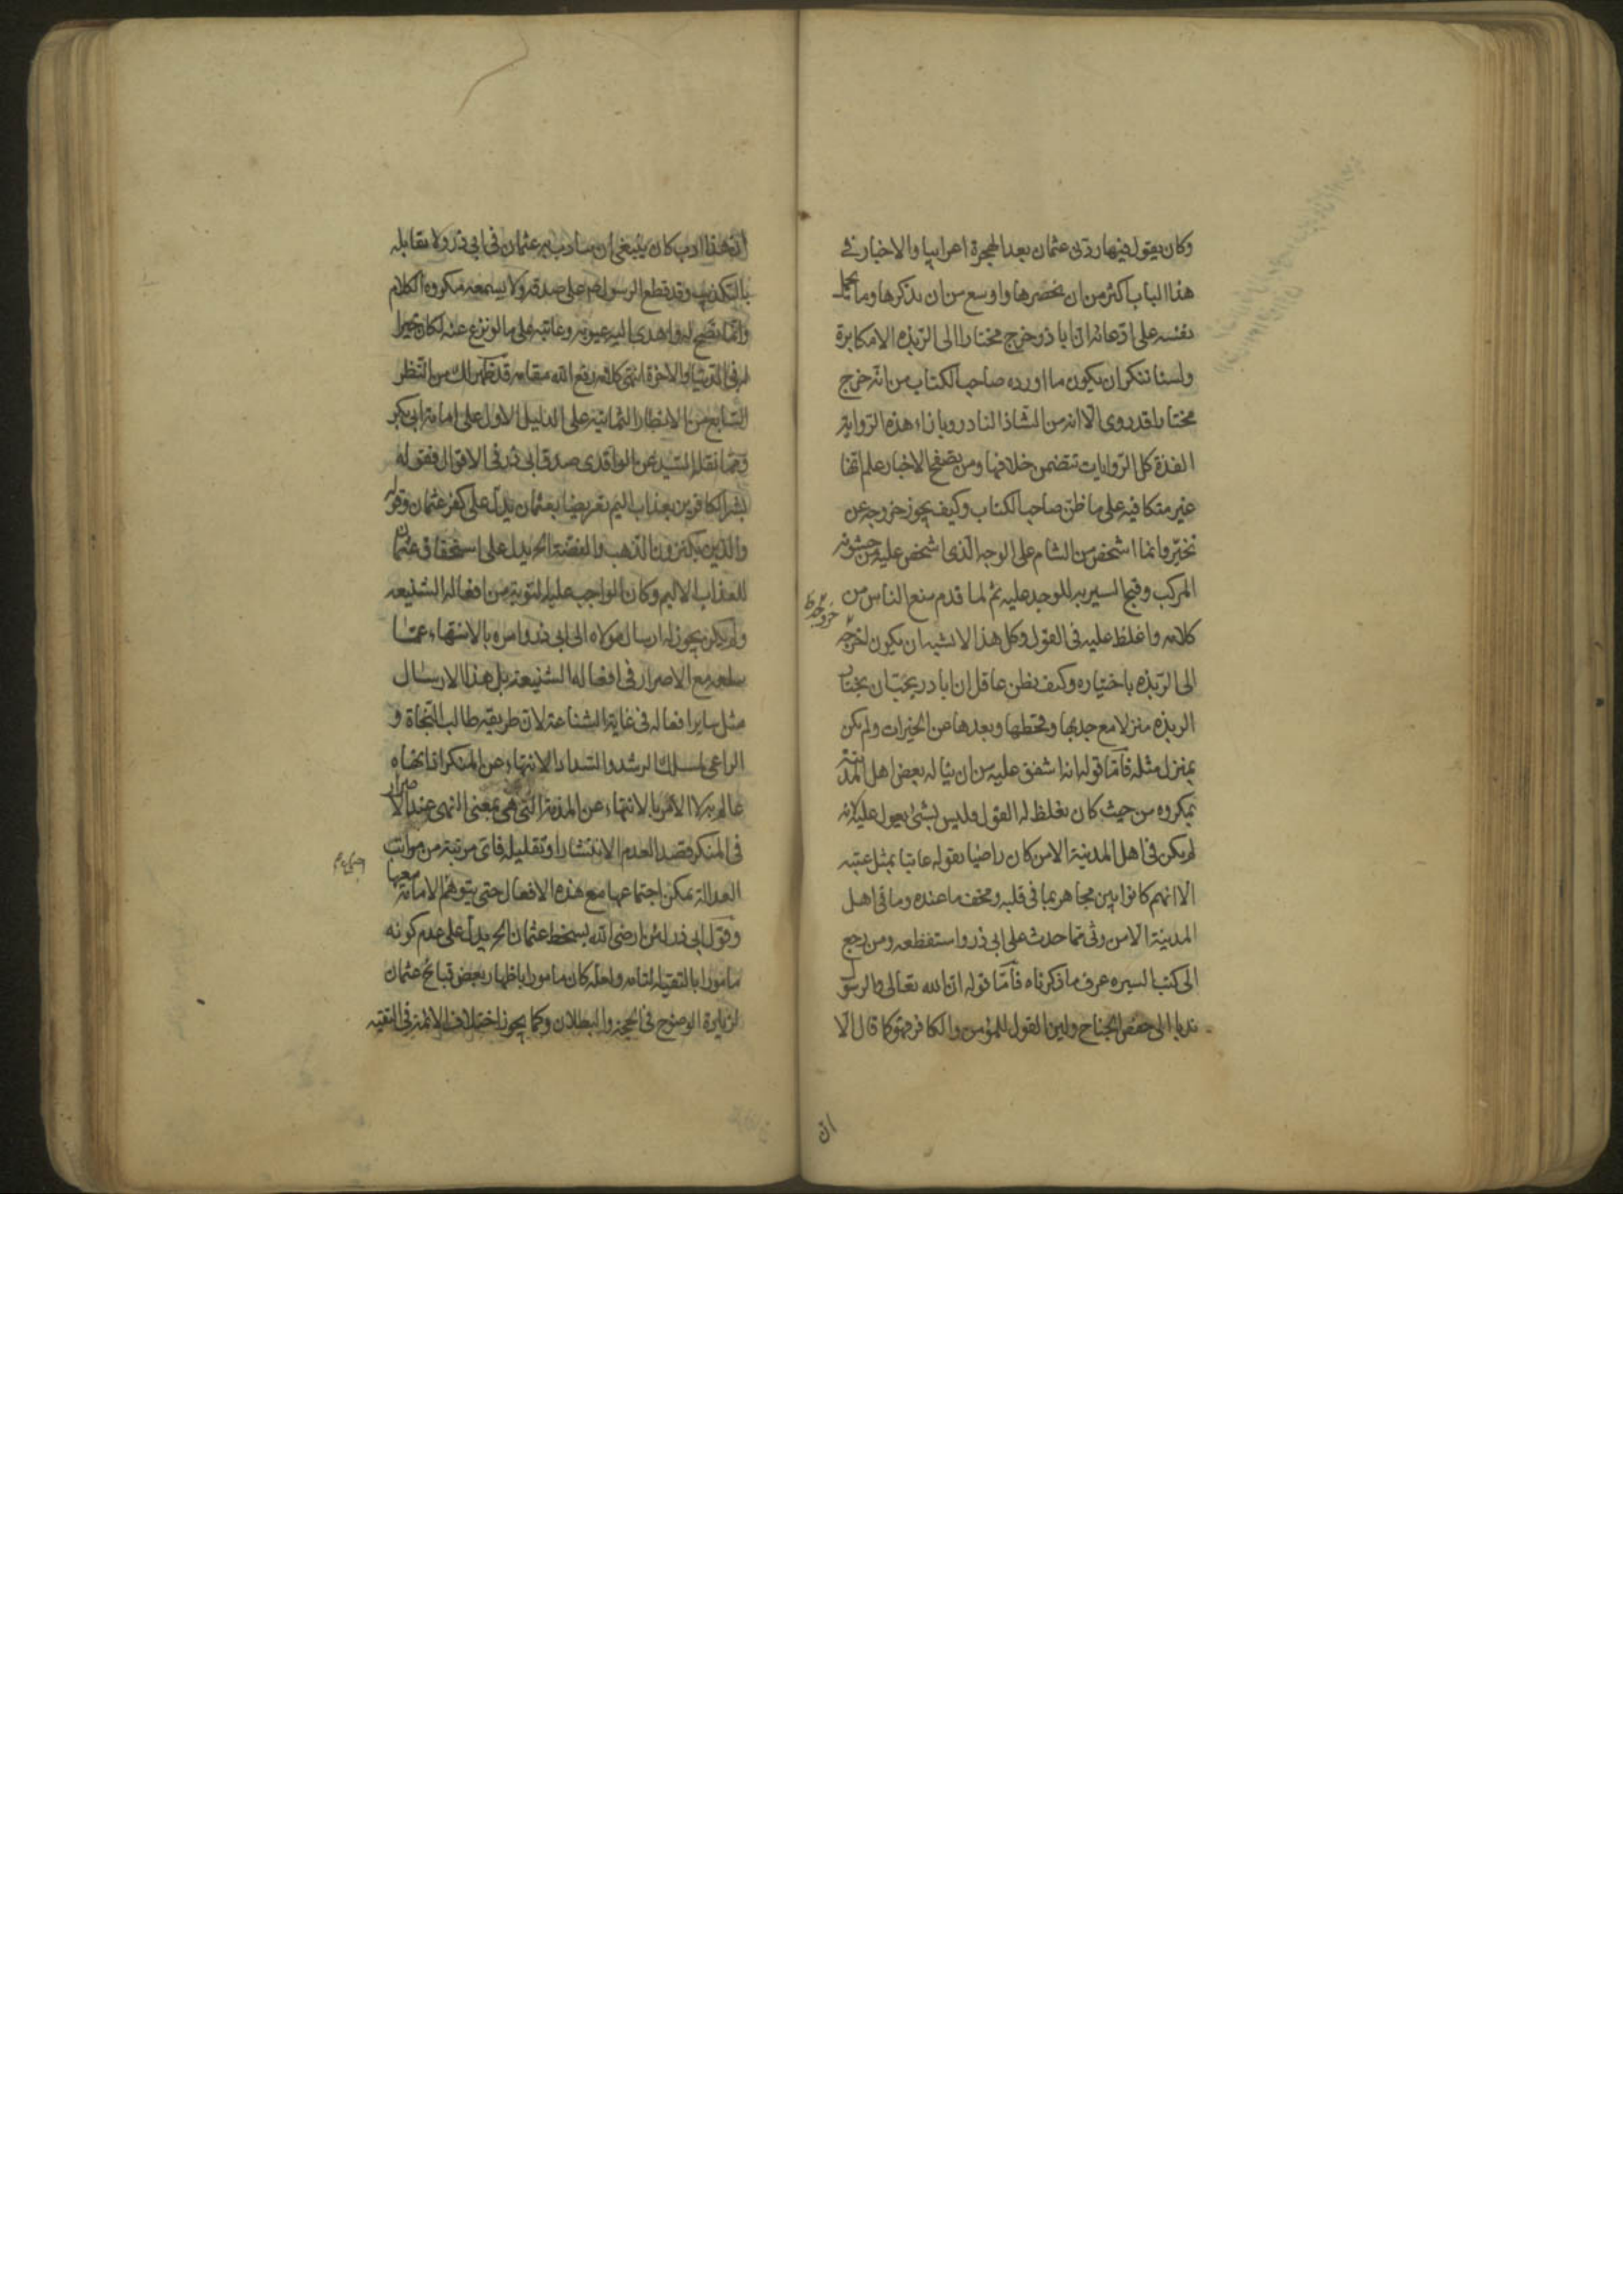 وكان يقول فيها ردني عثمان بعد الهجرة اعرابيا والاخبار في
هذا الباب اكثر من ان نحصرها واوسع من ان نذكرها وما يحمل
نفسه على ادعائه ان ابا ذر خرج مختارا الى الربذه الا مكابرة
ولسنا ننكر ان يكون ما اورده صاحب الكتاب من انه خرج
مختارا قد روى الا انه من الشاذ النادر وبازاء هذه الرواية
الفذة كل الروايات تتضمن خلافها ومن تصفح الاخبار علم انها
غير متكافيه على ما ظن صاحب الكتاب وكيف يجوز خروجه عن
تخير وانما اشخص من الشام على الوجه الذى اشخص عليه من خشونه
المركب وقبح السير به للوجد عليه ثم لما قدم منع الناس من
كلامه واغلظ عليه في القول وكل هذا لا يشبه ان يكون اخرجه
خروجه ظ
الى الربذه باختياره وكيف يظن عاقل ان ابا ذر يحب ان يختار
الربذه منزلا مع جدبها وقحطها وبعدها عن الخيرات ولم يكن
بمنزل مثله فاما قوله انه اشفق عليه من ان يناله بعض اهل المدينة
بمكروه من حيث كان يغلظ له القول فليس بشئ يعول عليه لانه
لم يكن في اهل المدينة الا من كان راضيا بقوله عاتبا بمثل عتبه
الا انهم كانوا بين مجاهر بما في قلبه ومخف ما عنده وما في اهل
المدينة الا من رثى مما حدث على ابى ذر واستفظعه ومن رجع
الى كتب السيره عرف ما ذكرناه فاما قوله ان الله تعالى والرسول
ندبا الى خفض الجناح ولين القول للمؤمن والكافر فهو كما قال الا
ان
ان هذا ادب كان ينبغى ان يتادب به عثمان في ابى ذر ولا يقابله
بالتكذيب وقد قطع الرسول صم على صدقه ولا يسمعه مكروه الكلام
وانما نصح له واهدى اليه عيوبه وعاتبه على ما لو نزع عنه لكان خيرا
له في الدنيا والاخرة انتهى كلامه رفع الله مقامه قد ظهر لك من النظر
السابع من الانظار الثمانية على الدليل الاول على امامة ابى بكر
ومما نقله السيد عن الواقدى صدق ابى ذر في الاقوال فقوله
بشر الكافرين بعذاب اليم تعريضا بعثمان يدل على كفر عثمان وقوله
والذين يكنزون الذهب والفضة الخ يدل على استحقاق عثمان
للعذاب الاليم وكان الواجب عليه التوبة من افعاله الشنيعه
ولم يكن يجوز له ارسال مولاه الى ابى ذر وامره بالانتهاء عما
بلغه مع الاصرار في افعاله الشنيعة بل هذا الارسال
مثل ساير افعاله في غاية الشناعة لان طريقة طالب النجاة و
الراعى لمسلك الرشد والسداد الانتهاء عن المنكر اذا نهاه
عالم به لا الامر بالانتهاء عن التى هى بمعنى النهى عند الاصرار
في المنكر قصدا لعدم الانتشار او تقليله فاى مرتبة من مراتب
العدالة يمكن اجتماعها مع هذه الافعال حتى يتوهم الامامة معها
وقول ابى ذر لئن ارضى الله بسخط عثمان الخ يدل على عدم كونه
مامورا بالتقية التامه ولعله كان مامورا باظهار بعض قبائح عثمان
لزيادة الوضوح في الحجة والبطلان وكما يجوز اختلاف الائمة في التقيه